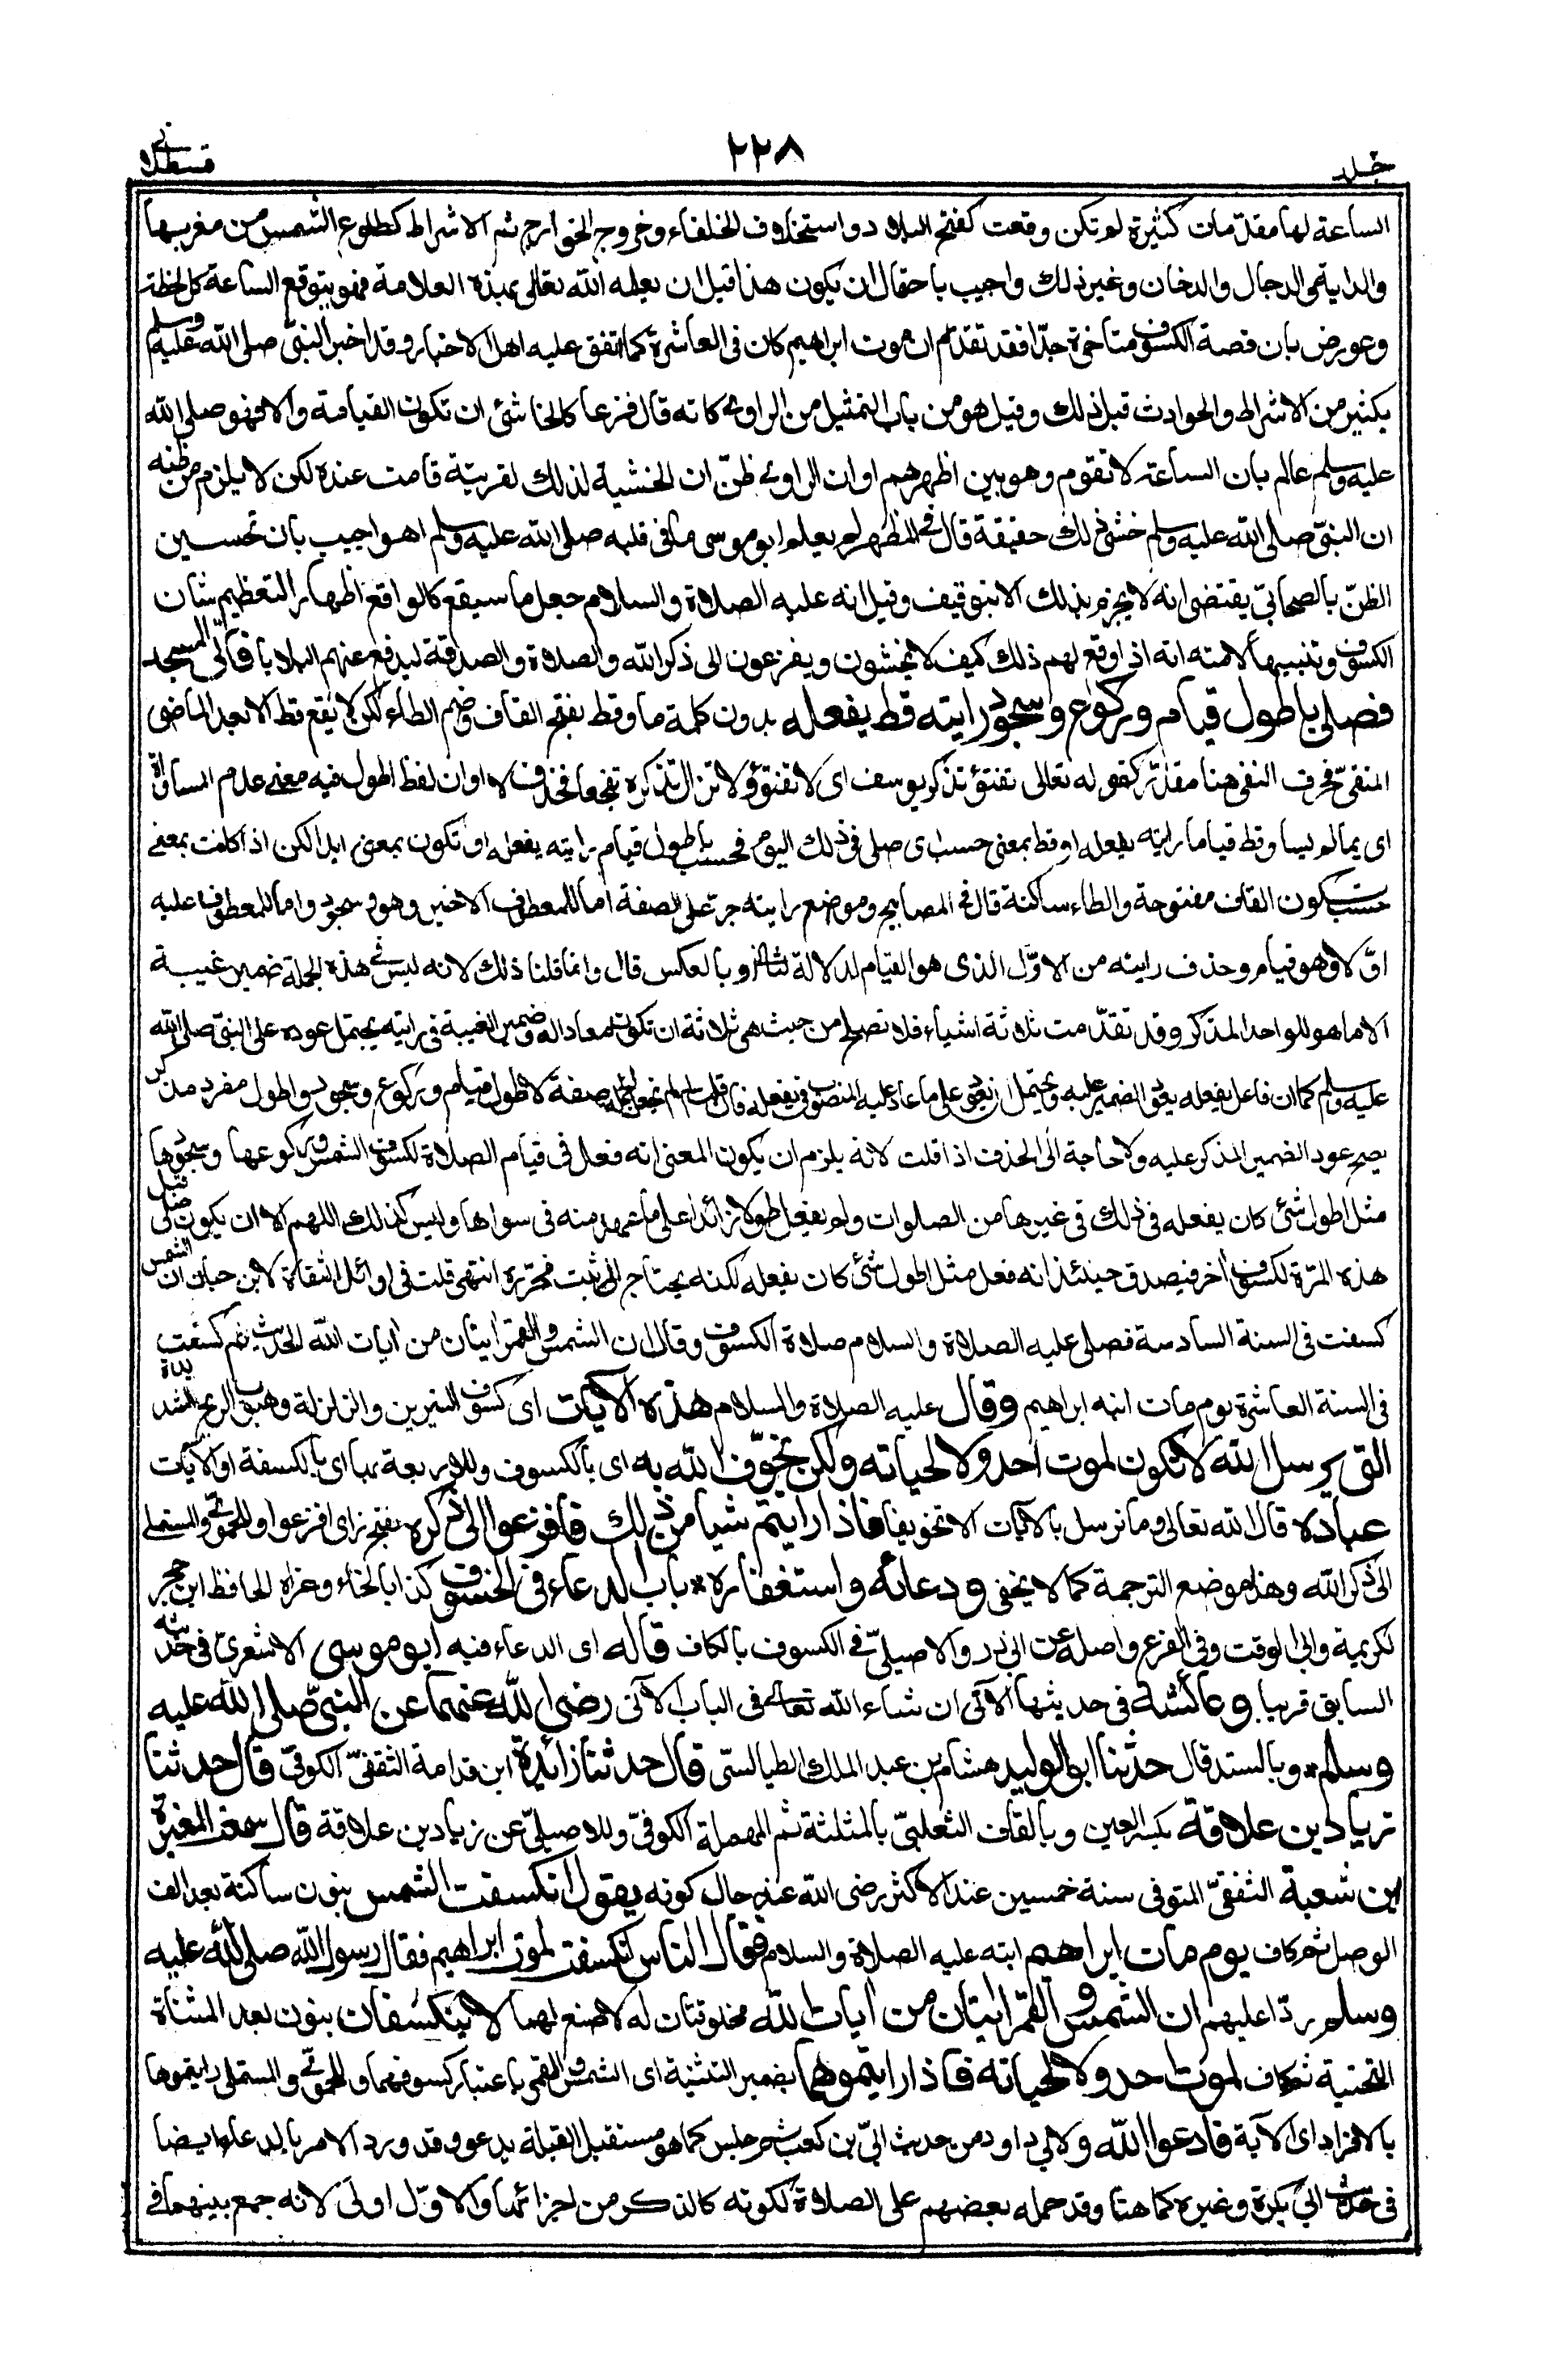 جلد ٢٢٨ قسطلانى
الساعة لها مقدّمات كثيرة لم تكن وقعت كفتح البلاد واستخلاف الخلفاء وخروج الخوارج ثم الاشراط كطلوع الشمس من مغربها
والدابة والدجال والدخان وغير ذلك واجيب باحتمال ان يكون هذا قبل ان يعلمه الله تعالى بهذه العلامة فهو يتوقع الساعة كل لحظة
وعورض بان قصة الكسوف متأخرة جدّا فقد تقدّم ان موت ابراهيم كان فى العاشرة كما اتفق عليه اهل الاخبار وقد اخبر النبىّ صلى الله عليه وسلم
بكثير من الاشراط والحوادث قبل ذلك وقيل هو من باب التمثيل من الراوى كانه قال فزعا كالخاشئ ان تكون القيامة والا فهو صلى الله
عليه وسلم عالم بان الساعة لا تقوم وهو بين اظهرهم او ان الراوى ظنّ ان الخشية لذلك لقرينة قامت عنده لكن لا يلزم من ظنه
ان النبىّ صلى الله عليه وسلم خشى ذلك حقيقة قال فى المظهر لم يعلم ابو موسى ما فى قلبه صلى الله عليه وسلم اهـ واجيب بان تحسين
الظنّ بالصحابىّ يقتضى انه لا يجزم بذلك الا بتوقيف وقيل انه عليه الصلاة والسلام جعل ما سيقع كالواقع اظهارا لتعظيم شان
الكسوف وتنبيها لامته انه اذا وقع لهم ذلك كيف لا يخشون ويفزعون الى ذكر الله والصلاة والصدقة ليدفع عنهم البلايا فأتى المسجد
فصلى باطول قيام وركوع وسجود رايته قط يفعله بدون كلمة ما وقط بفتح القاف وضم الطاء لكن لا يقع قط الا بعد الماضى
المنفىّ فحرف النفى هنا مقدّر كقوله تعالى تفتؤ تذكر يوسف اى لا تفتؤ ولا تزال تذكره تفجعا فحذف لا او ان لفظ اطول فيه معنى عدم المساواة
اى بما لم يساو قط قياما رايته يفعله او قط بمعنى حسب اى صلى فى ذلك اليوم فحسب باطول قيام رايته يفعله او تكون بمعنى ابدا لكن اذا كانت بمعنى
حسب تكون القاف مفتوحة والطاء ساكنة قال فى المصابيح وموضع رايته جرّ على الصفة اما للمعطوف الاخير وهو سجود واما للمعطوف عليه
اوّلا وهو قيام وحذف رايته من الاوّل الذى هو القيام لدلالة الثانى او بالعكس قال وانما قلنا ذلك لانه ليس فى هذه الجملة ضمير غيبة
الا ما هو للواحد المذكر وقد تقدّمت ثلاثة اشياء فلا تصلح من حيث هى ثلاثة ان تكون معادا له وضمير الغيبة فى رايته يحتمل عوده على النبىّ صلى الله
عليه وسلم كما ان فاعل يفعله يعود الضمير عليه ويحتمل ان يعود على ما عاد عليه المنصوب فى يفعله فان قلت لم لم تجعل الجملة صفة لاطول قيام وركوع وسجود واطول مفرد مذكر
يصح عود الضمير المذكر عليه ولا حاجة الى الحذف اذا قلت لانه يلزم ان يكون المعنى انه فعل فى قيام الصلاة لكسوف الشمس وركوعها وسجودها
مثل اطول شئ كان يفعله فى ذلك فى غيرها من الصلوات ولم يفعل طولا زائدا على ما عهد منه فى سواها وليس كذلك اللهم الا ان يكون صلى قبل
هذه المرّة لكسوف آخر فيصدق حينئذ انه فعل مثل اطول شئ كان يفعله لكنه يحتاج الى ثبت فحرّره انتهى قلت فى اوائل الثقات لابن حبان ان الشمس
كسفت فى السنة السادسة فصلى عليه الصلاة والسلام صلاة الكسوف وقال ان الشمس والقمر آيتان من آيات الله الحديث ثم كسفت
فى السنة العاشرة يوم مات ابنه ابراهيم وقال عليه الصلاة والسلام هذه الآيات اى كسوف النيرين والزلزلة وهبوب الريح الشديدة
التى يرسل الله لا تكون لموت احد ولا لحياته ولكن يخوّف الله به اى بالكسوف وللاربعة بها اى بالكسفة او الآيات
عباده قال الله تعالى وما نرسل بالآيات الا تخويفا فاذا رايتم شيا من ذلك فافزعوا الى ذكره بفتح زاى افزعوا وللحموى والمستملى
الى ذكر الله وهذا موضع الترجمة كما لا يخفى ودعائه واستغفاره * باب الدعاء فى الخسوف كذا بالخاء وعزاه الحافظ ابن حجر
لكريمة وابى الوقت وفى الفرع واصله عن ابى ذر والاصيلىّ فى الكسوف بالكاف قاله اى الدعاء فيه ابو موسى الاشعرىّ فى حديثه
السابق قريبا وعائشة فى حديثها الآتى ان شاء الله تعالى فى الباب الآتى رضى الله عنهما عن النبىّ صلى الله عليه
وسلم * وبالسند قال حدثنا ابو الوليد هشام بن عبد الملك الطيالسىّ قال حدثنا زائدة ابن قدامة الثقفىّ الكوفىّ قال حدثنا
زياد بن علاقة بكسر العين وبالقاف الثعلبىّ بالمثلثة ثم المهملة الكوفىّ وللاصيلىّ عن زياد بن علاقة قال سمعت المغيرة
ابن شعبة الثقفىّ المتوفى سنة خمسين عند الاكثر رضى الله عنه حال كونه يقول انكسفت الشمس بنون ساكنة بعد الف
الوصل ثم كاف يوم مات ابراهيم ابنه عليه الصلاة والسلام فقال الناس انكسفت لموت ابراهيم فقال رسول الله صلى الله عليه
وسلم ردّا عليهم ان الشمس والقمر آيتان من آيات الله مخلوقتان له لا صنع لهما لا ينكسفان بنون بعد المثناة
التحتية ثم كاف لموت احد ولا لحياته فاذا رايتموهما بضمير التثنية اى الشمس والقمر باعتبار كسوفهما وللحموى والمستملى رايتموها
بالافراد اى الآية فادعوا الله ولابى داود من حديث ابىّ بن كعب ثم جلس كما هو مستقبل القبلة يدعو وقد ورد الامر بالدعاء ايضا
فى حديث ابى بكرة وغيره كما هنا وقد حمله بعضهم على الصلاة لكونه كالذكر من اجزائها والاوّل اولى لانه جمع بينهما فى